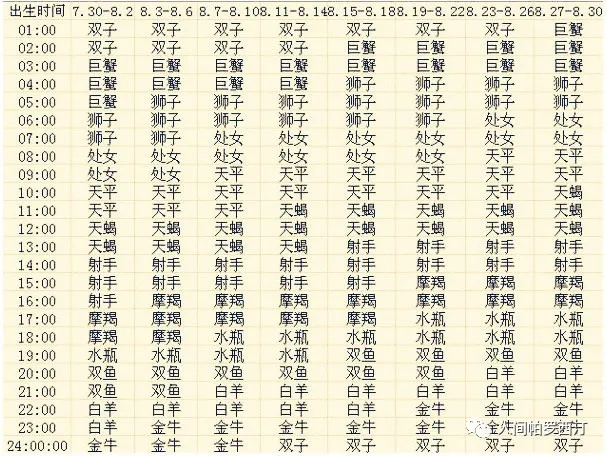 出生时间 7.30-8.2 8.3-8.6 8.7-8.10 8.11-8.14 8.15-8.18 8.19-8.22 8.23-8.26 8.27-8.30
01:00 双子 双子 双子 双子 双子 双子 双子 巨蟹
02:00 双子 双子 双子 双子 巨蟹 巨蟹 巨蟹 巨蟹
03:00 巨蟹 巨蟹 巨蟹 巨蟹 巨蟹 巨蟹 巨蟹 巨蟹
04:00 巨蟹 巨蟹 巨蟹 巨蟹 狮子 狮子 狮子 狮子
05:00 巨蟹 狮子 狮子 狮子 狮子 狮子 狮子 狮子
06:00 狮子 狮子 狮子 狮子 狮子 狮子 处女 处女
07:00 狮子 狮子 处女 处女 处女 处女 处女 处女
08:00 处女 处女 处女 处女 处女 处女 天平 天平
09:00 处女 处女 天平 天平 天平 天平 天平 天平
10:00 天平 天平 天平 天平 天平 天平 天平 天蝎
11:00 天平 天平 天平 天蝎 天蝎 天蝎 天蝎 天蝎
12:00 天蝎 天蝎 天蝎 天蝎 天蝎 天蝎 天蝎 天蝎
13:00 天蝎 天蝎 天蝎 天蝎 射手 射手 射手 射手
14:00 射手 射手 射手 射手 射手 射手 射手 射手
15:00 射手 射手 射手 射手 射手 摩羯 摩羯 摩羯
16:00 射手 摩羯 摩羯 摩羯 摩羯 摩羯 摩羯 摩羯
17:00 摩羯 摩羯 摩羯 摩羯 摩羯 水瓶 水瓶 水瓶
18:00 摩羯 摩羯 水瓶 水瓶 水瓶 水瓶 水瓶 水瓶
19:00 水瓶 水瓶 水瓶 水瓶 双鱼 双鱼 双鱼 双鱼
20:00 双鱼 双鱼 双鱼 双鱼 双鱼 双鱼 白羊 白羊
21:00 双鱼 双鱼 白羊 白羊 白羊 白羊 白羊 白羊
22:00 白羊 白羊 白羊 白羊 白羊 金牛 金牛 金牛
23:00 白羊 金牛 金牛 金牛 金牛 金牛 金牛 金牛
24:00:00 金牛 金牛 金牛 双子 双子 双子 双子 双子
人间帕罗西汀